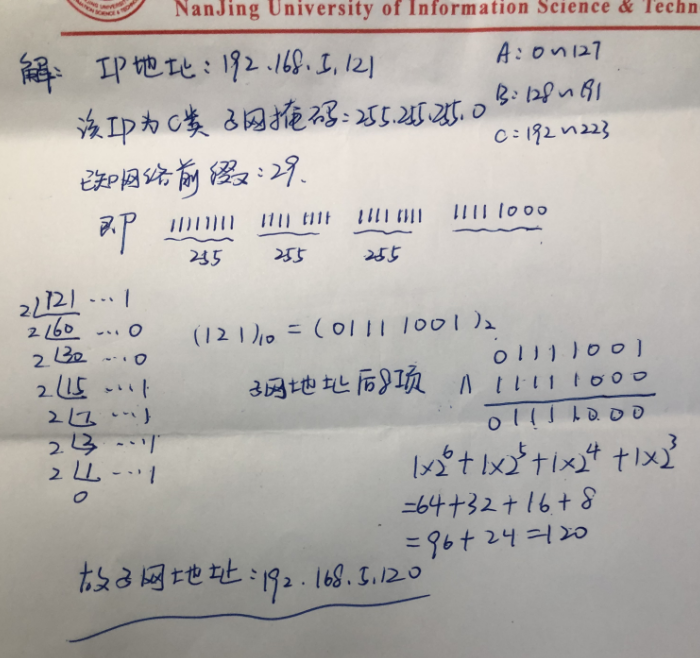 NanJing University of Information Science & Techn
解: IP地址: 192.168.5.121
A: 0~127
该IP为C类 子网掩码: 255.255.255.0
B: 128~191
C: 192~223
已知网络前缀: 29.
即 11111111 11111111 11111111 11111000
255 255 255
2 121 ... 1
2 60 ... 0
2 30 ... 0
2 15 ... 1
2 7 ... 1
2 3 ... 1
2 1 ... 1
0
(121)10 = (01111001)2
01111001
子网地址后8项 ∧ 11111000
01111000
1×2^6+1×2^5+1×2^4+1×2^3
=64+32+16+8
=96+24=120
故子网地址: 192.168.5.120